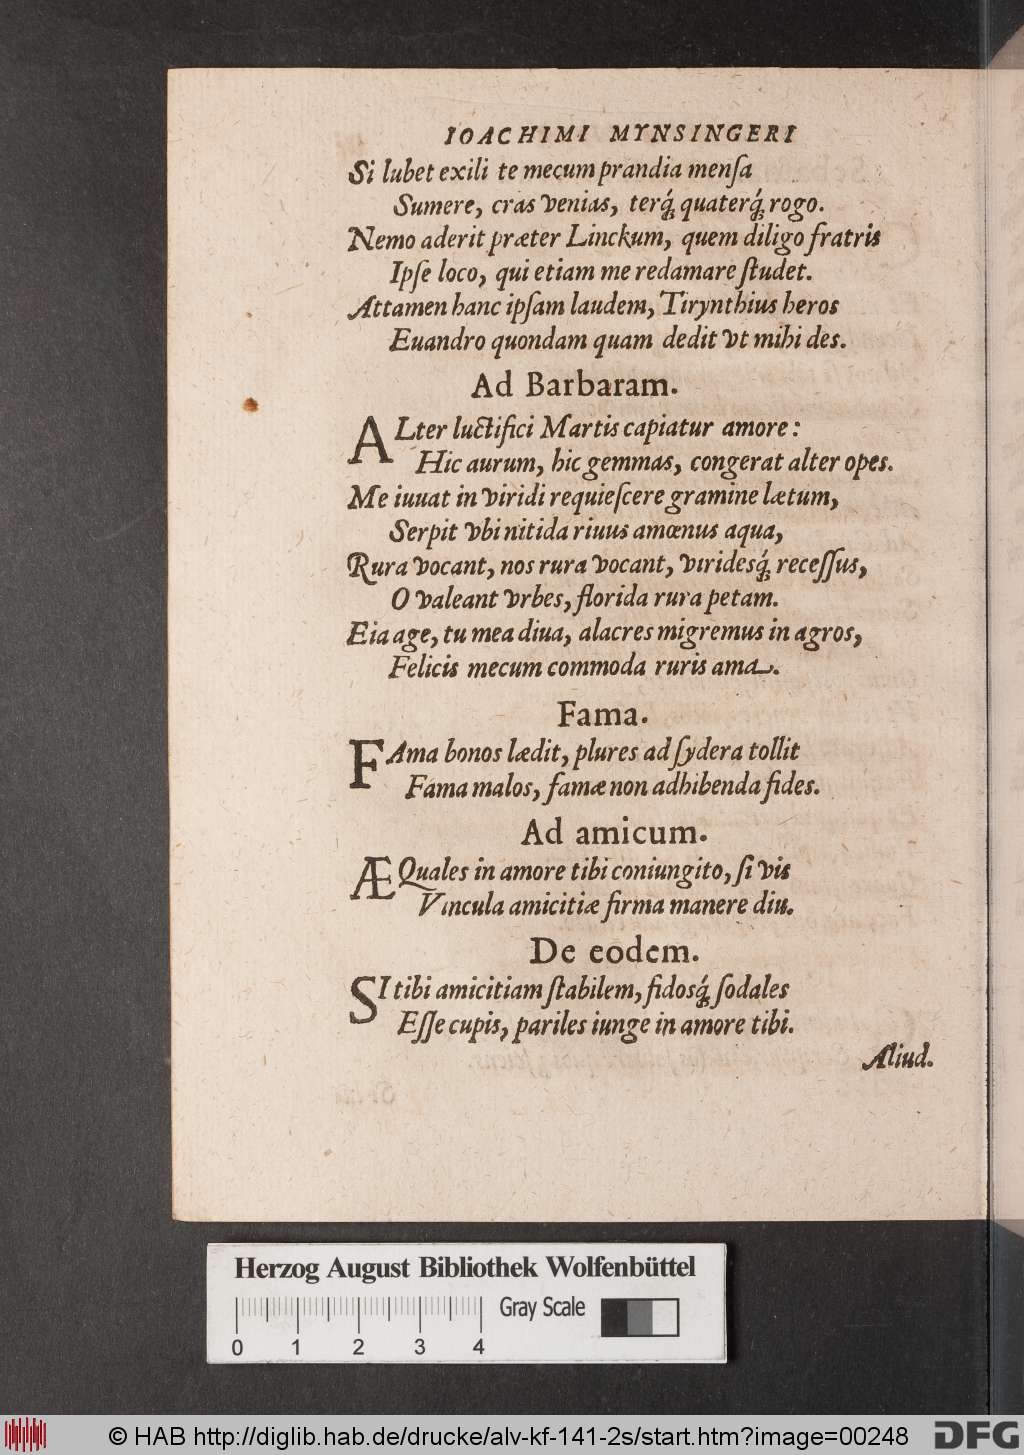 IOACHIMI MYNSINGERI
Si lubet exili te mecum prandia menſa
Sumere, cras venias, terq́; quaterq́; rogo.
Nemo aderit præter Linckum, quem diligo fratris
Ipſe loco, qui etiam me redamare ſtudet.
Attamen hanc ipſam laudem, Tirynthius heros
Euandro quondam quam dedit vt mihi des.
Ad Barbaram.
ALter luctifici Martis capiatur amore:
Hic aurum, hic gemmas, congerat alter opes.
Me iuuat in viridi requieſcere gramine lætum,
Serpit vbi nitida riuus amœnus aqua,
Rura vocant, nos rura vocant, viridesq́; receſſus,
O valeant vrbes, florida rura petam.
Eia age, tu mea diua, alacres migremus in agros,
Felicis mecum commoda ruris ama.
Fama.
FAma bonos lædit, plures ad ſydera tollit
Fama malos, famæ non adhibenda fides.
Ad amicum.
ÆQuales in amore tibi coniungito, ſi vis
Vincula amicitiæ firma manere diu.
De eodem.
SI tibi amicitiam ſtabilem, fidosq́; ſodales
Eſſe cupis, pariles iunge in amore tibi.
Aliud.
Herzog August Bibliothek Wolfenbüttel
Gray Scale
0 1 2 3 4
© HAB http://diglib.hab.de/drucke/alv-kf-141-2s/start.htm?image=00248
DFG